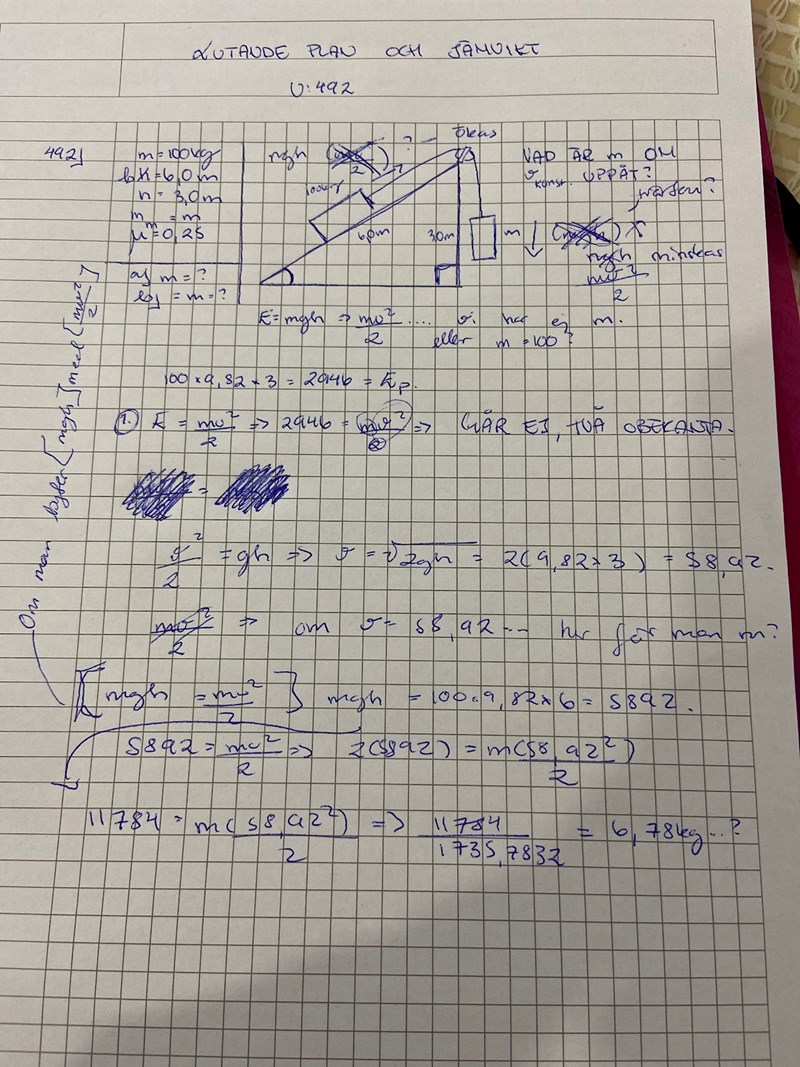 LUTANDE PLAN OCH JÄMVIKT
U:492
492)
m=100kg
x=6,0m
h=3,0m
m = m
μ=0,25
a) m=?
b) =m=?
mgh
? - ökas
100kg
6,0m
3,0m
m
VAD ÄR m OM
v konst. UPPÅT?
mgh minskas
mv²/2
E=mgh => mv²/2 .... v. har ej m.
eller m=100?
100×9,82×3=2946=Ep.
1. E=mv²/2 => 2946=mv²/2 => GÅR EJ, TVÅ OBEKANTA.
v²/2 =gh => v=√2gh = 2(9,82×3)=58,92.
mv²/2 => om v=58,92... hur får man m?
Om man byter [mgh] med [mv²/2]
[mgh =mv²/2] mgh =100×9,82×6=5892.
5892=mv²/2 => 2(5892)=m(58,92²)/2
11784=m(58,92²)/2 => 11784/1735,7832 = 6,78kg..?